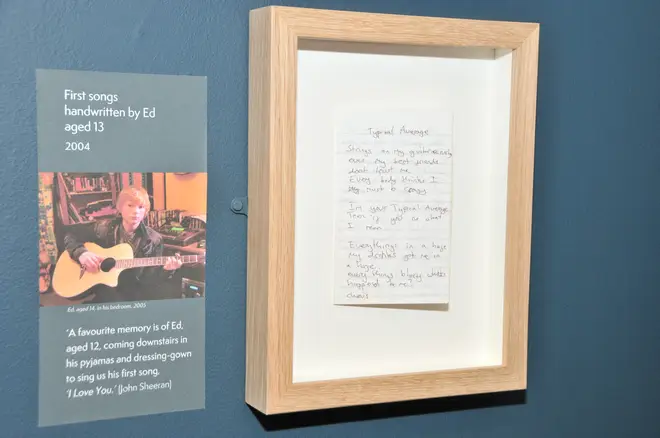 First songs
handwritten by Ed
aged 13
2004
Ed, aged 14, in his bedroom, 2005
'A favourite memory is of Ed,
aged 12, coming downstairs in
his pyjamas and dressing-gown
to sing us his first song,
'I Love You.' (John Sheeran)
Typical Average
Strings on my guitar
even my best friends
dont trust me
Every body thinks I
must be crazy
Im your Typical Average
Teen if you no what
I mean
Everythings in a haze
my got me in
a
every thing
happened to me